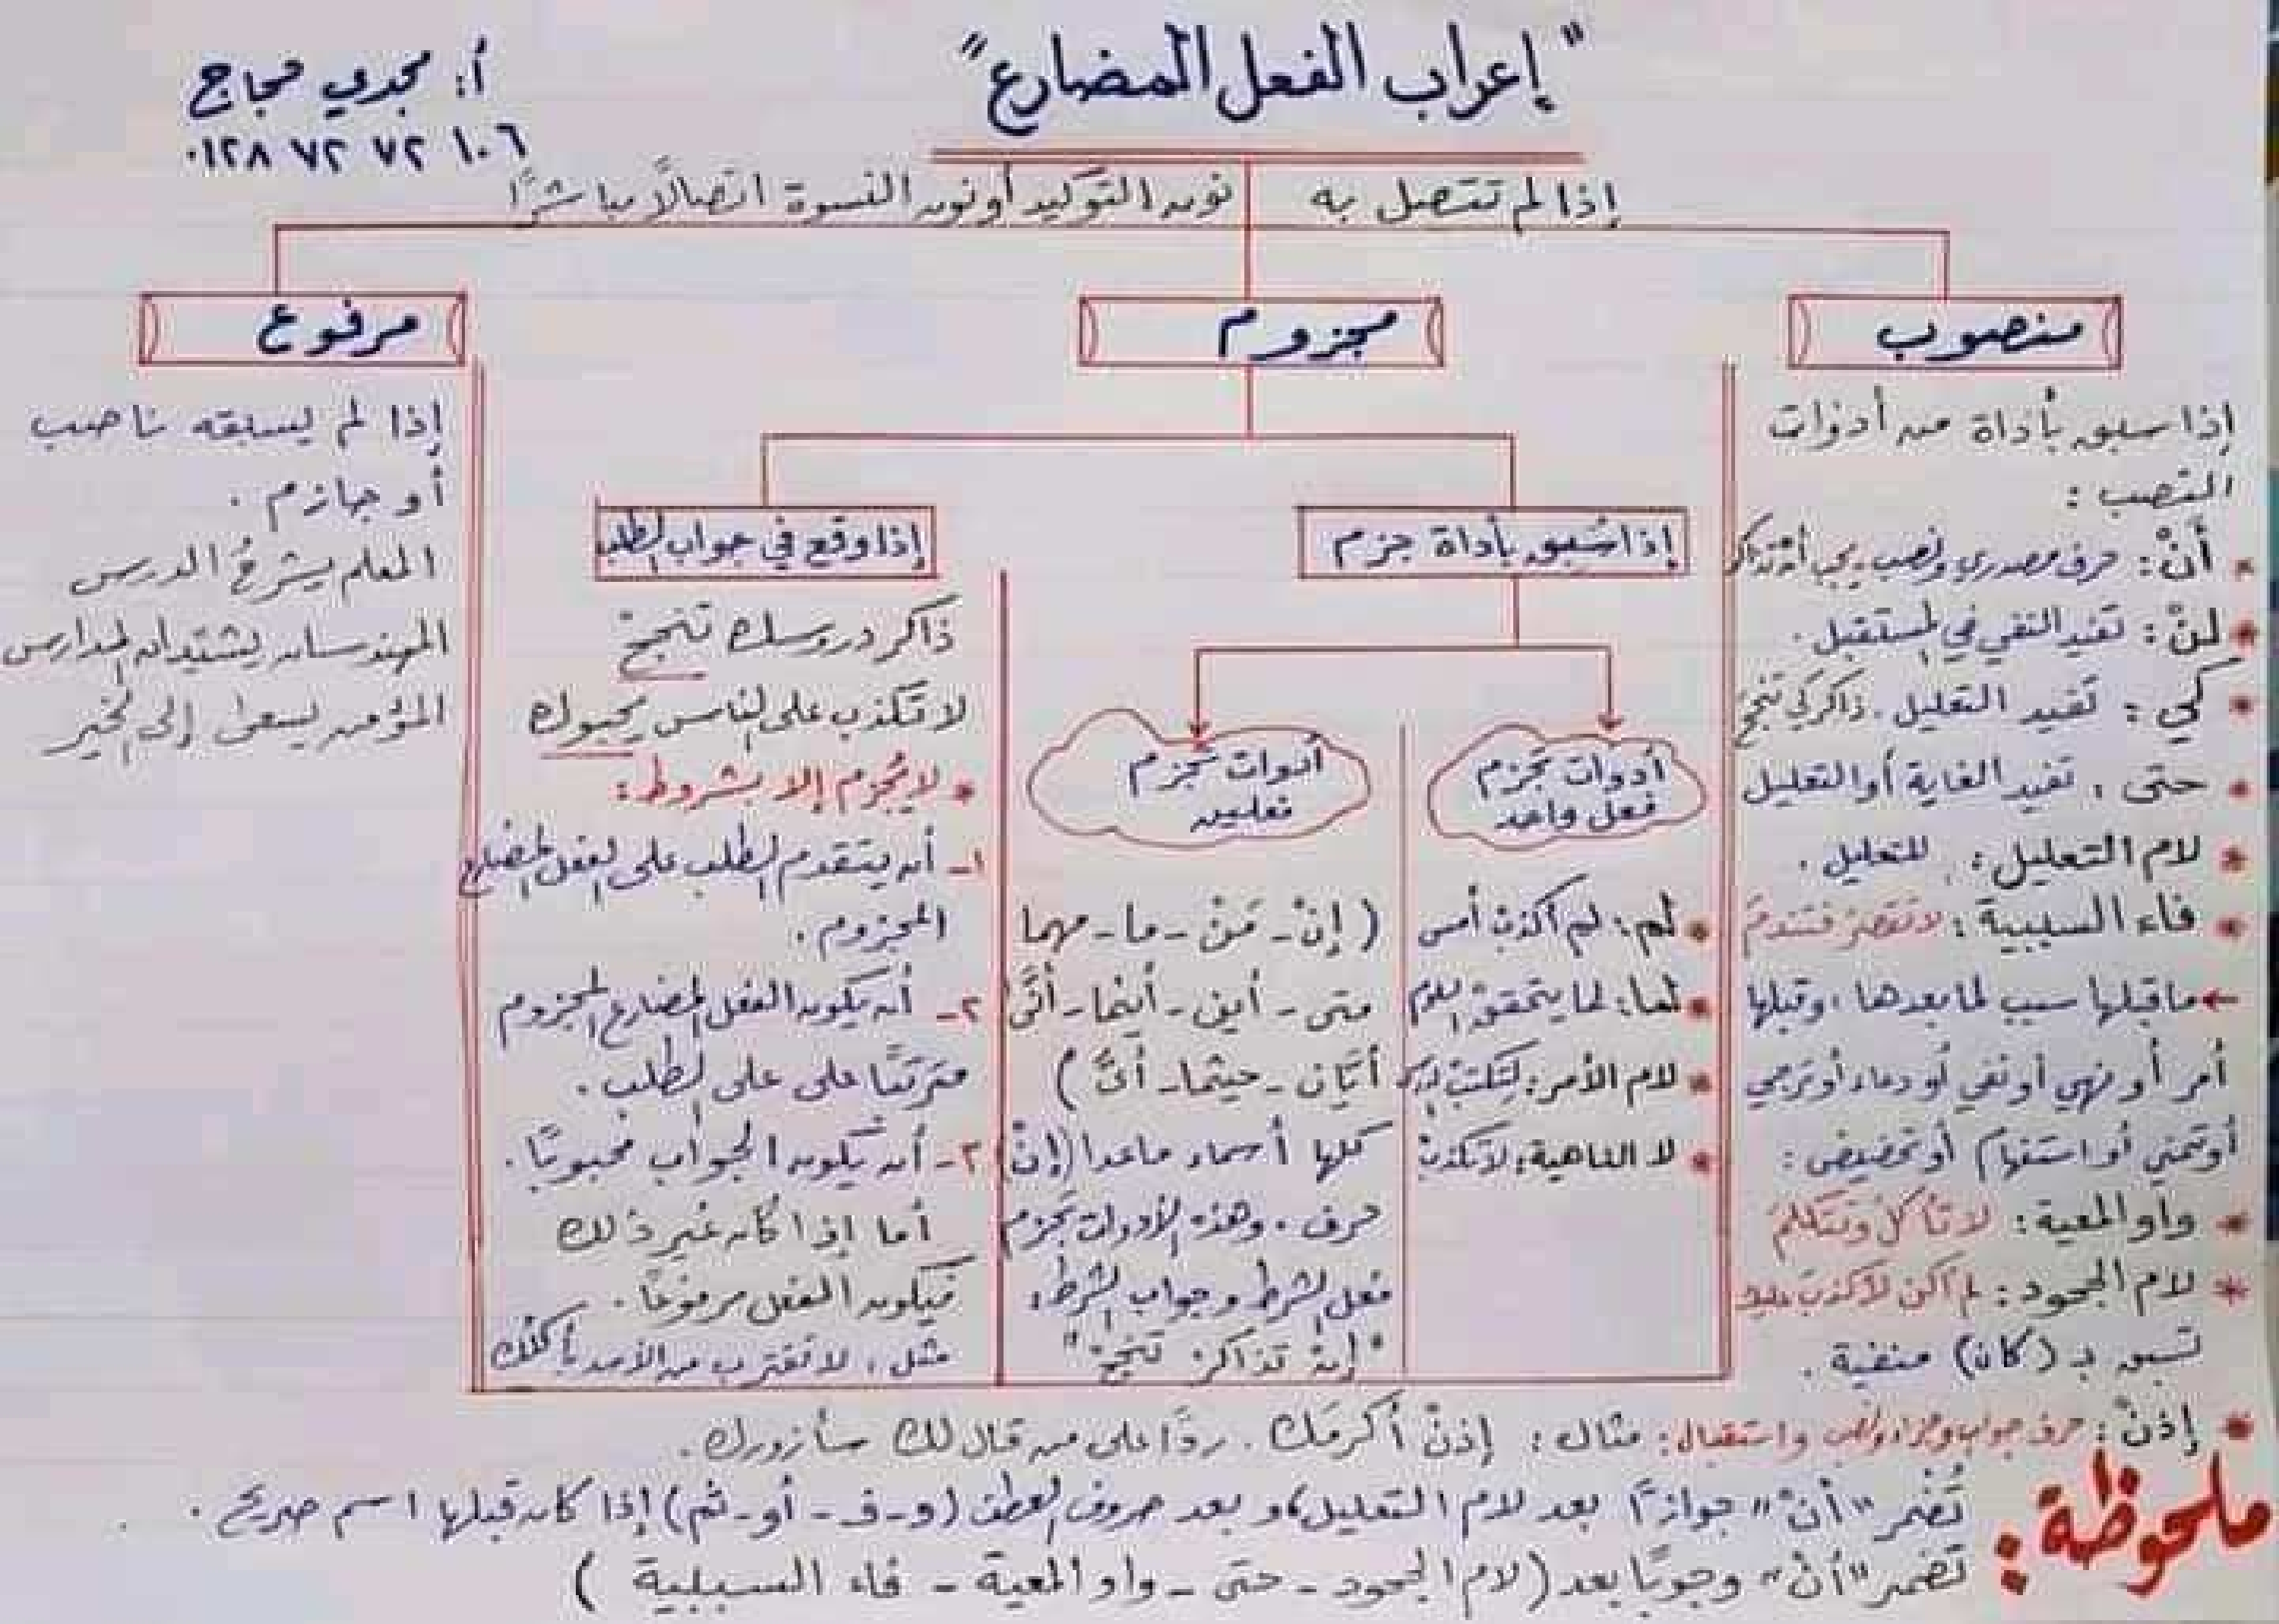 "إعراب الفعل المضارع"
أ: مجدي حجاج
٠١٢٨ ٧٢ ٧٢ ١٠٦
إذا لم تتصل به نون التوكيد أو نون النسوة اتصالًا مباشرًا
منصوب
إذا سبق بأداة من أدوات
النصب :
* أنْ: حرف مصدري ونصب يجب أن تذاكر
* لنْ: تفيد النفي في المستقبل .
* كي: تفيد التعليل . ذاكر كي تنجح
* حتى : تفيد الغاية أو التعليل
* لام التعليل: للتعليل .
* فاء السببية: لا تقصر فتندمَ
← ما قبلها سبب لما بعدها ، وقبلها
أمر أو نهي أو نفي أو دعاء أو ترجي
أو تمني أو استفهام أو تحضيض :
* واو المعية: لا تأكل وتتكلمَ
* لام الجحود: لم أكن لأكذبَ
تسبق بـ (كان) منفية .
* إذنْ: حرف جواب وجزاء ونصب واستقبال: مثال: إذنْ أكرمَك . ردًا على من قال لك سأزورك .
مجزوم
إذا سُبق بأداة جزم
أدوات تجزم
فعل واحد
* لم: لم أكذبْ أمس
* لما: لما يتحقق
* لام الأمر: لتكتبْ
* لا الناهية: لا تكذبْ
أدوات تجزم
فعلين
( إنْ - مَنْ - ما - مهما
متى - أين - أينما - أنَّى
أيَّان - حيثما - أيَّ )
كلها أسماء ما عدا (إنْ)
حرف . وهذه الأدوات تجزم
فعل الشرط وجواب الشرط:
"إن تذاكرْ تنجحْ"
إذا وقع في جواب الطلب
ذاكر دروسك تنجحْ
لا تكذب على الناس يحبوك
* لا يُجزم إلا بشروط:
١- أن يتقدم الطلب على الفعل المضارع
المجزوم .
٢- أن يكون الفعل المضارع المجزوم
مترتبًا على على الطلب .
٣- أن يكون الجواب محبوبًا .
أما إذا كان غير ذلك
فيكون الفعل مرفوعًا .
مثل : لا تقترب من الأسد يأكلُك
مرفوع
إذا لم يسبقه ناصب
أو جازم .
المعلم يشرحُ الدرس
المهندسان يشيدان المدارس
المؤمن يسعى إلى الخير
ملحوظة:
تُضمر "أنْ" جوازًا بعد لام التعليل، وبعد حروف العطف (و - ف - أو - ثم) إذا كان قبلها اسم صريح .
تضمر "أنْ" وجوبًا بعد (لام الجحود - حتى - واو المعية - فاء السببية )